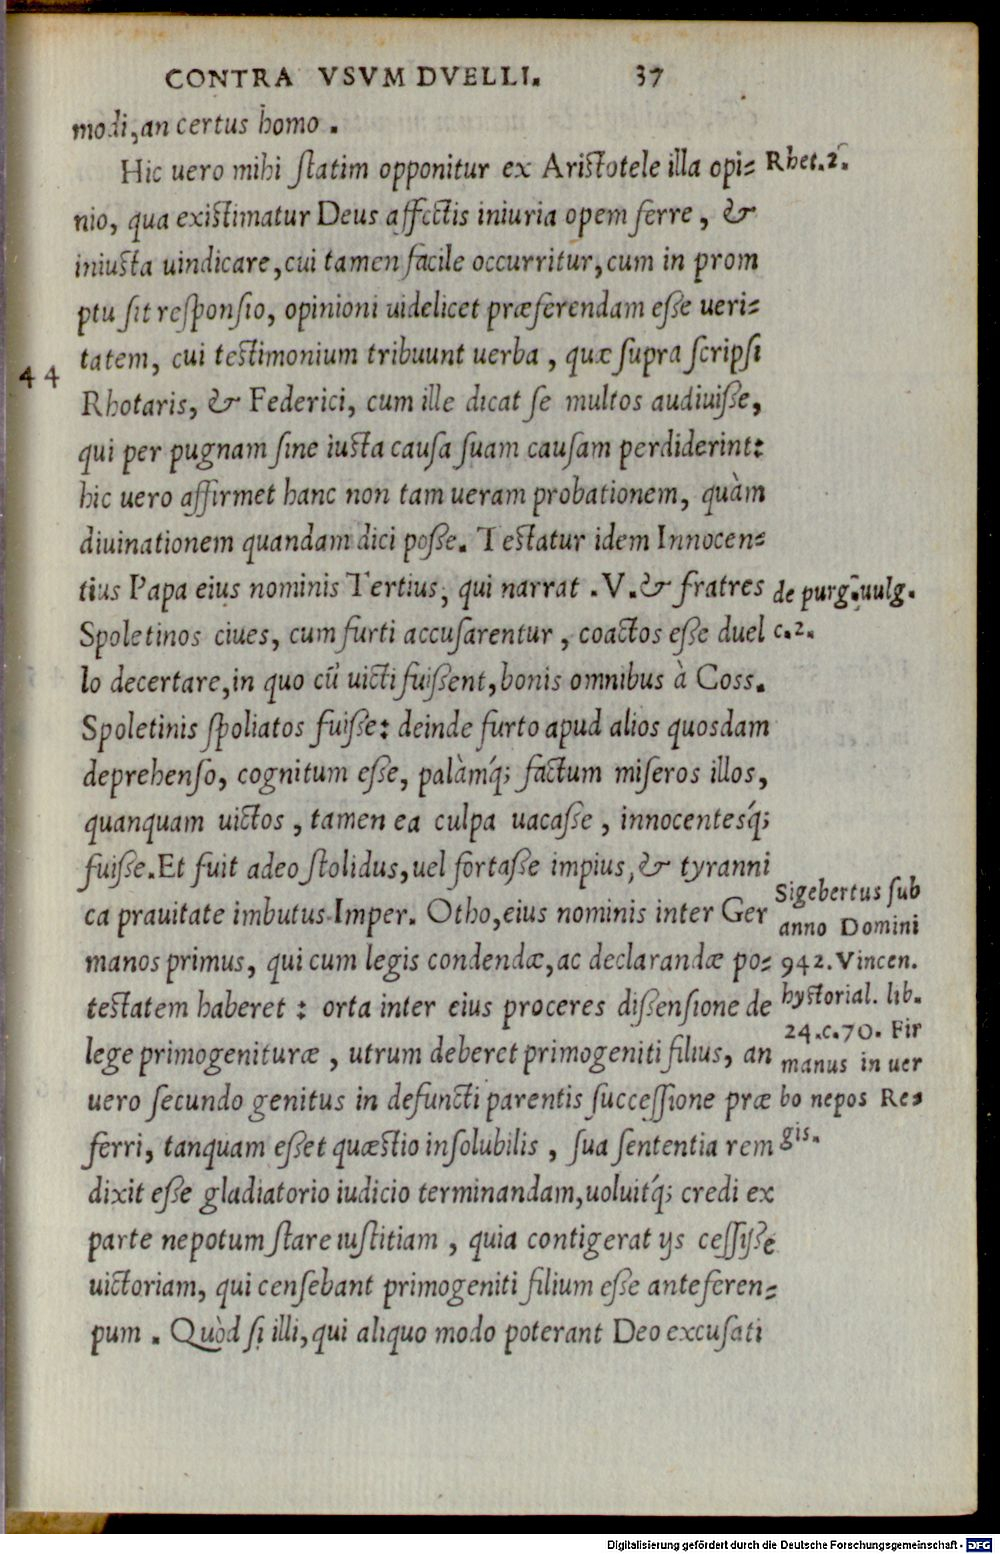 CONTRA VSVM DVELLI. 37
modi, an certus homo .
Hic uero mihi statim opponitur ex Aristotele illa opi=
Rhet.2.
nio, qua existimatur Deus affectis iniuria opem ferre, &
iniusta uindicare, cui tamen facile occurritur, cum in prom
ptu sit responsio, opinioni uidelicet præferendam esse ueri=
tatem, cui testimonium tribuunt uerba, quæ supra scripsi
44
Rhotaris, & Federici, cum ille dicat se multos audiuisse,
qui per pugnam sine iusta causa suam causam perdiderint:
hic uero affirmet hanc non tam ueram probationem, quàm
diuinationem quandam dici posse. Testatur idem Innocen=
tius Papa eius nominis Tertius, qui narrat .V. & fratres
de purg. uulg.
Spoletinos ciues, cum furti accusarentur, coactos esse duel
c.2.
lo decertare, in quo cũ uicti fuissent, bonis omnibus à Coss.
Spoletinis spoliatos fuisse: deinde furto apud alios quosdam
deprehenso, cognitum esse, palàmq́; factum miseros illos,
quanquam uictos, tamen ea culpa uacasse, innocentesq́;
fuisse. Et fuit adeo stolidus, uel fortasse impius, & tyranni
ca prauitate imbutus Imper. Otho, eius nominis inter Ger
manos primus, qui cum legis condendæ, ac declarandæ po=
testatem haberet : orta inter eius proceres dissensione de
lege primogenituræ, utrum deberet primogeniti filius, an
uero secundo genitus in defuncti parentis successione præ
ferri, tanquam esset quæstio insolubilis, sua sententia rem
Sigebertus sub
anno Domini
942. Vincen.
hystorial. lib.
24.c.70. Fir
manus in uer
bo nepos Re=
gis.
dixit esse gladiatorio iudicio terminandam, uoluitq́; credi ex
parte nepotum stare iustitiam, quia contigerat ijs cessisse
uictoriam, qui censebant primogeniti filium esse anteferen=
pum . Quòd si illi, qui aliquo modo poterant Deo excusati
Digitalisierung gefördert durch die Deutsche Forschungsgemeinschaft - DFG